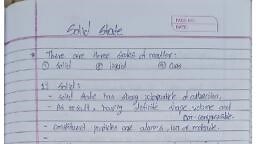 Solid State
PAGE NO.
DATE:
* There are three states of matter:
① Solid ② liquid ③ Gas
1) Solid:
- Solid state has strong of attraction.
- As result, having definite shape, volume and
non-compressible.
- constituent particles are atoms, ion or molecule.